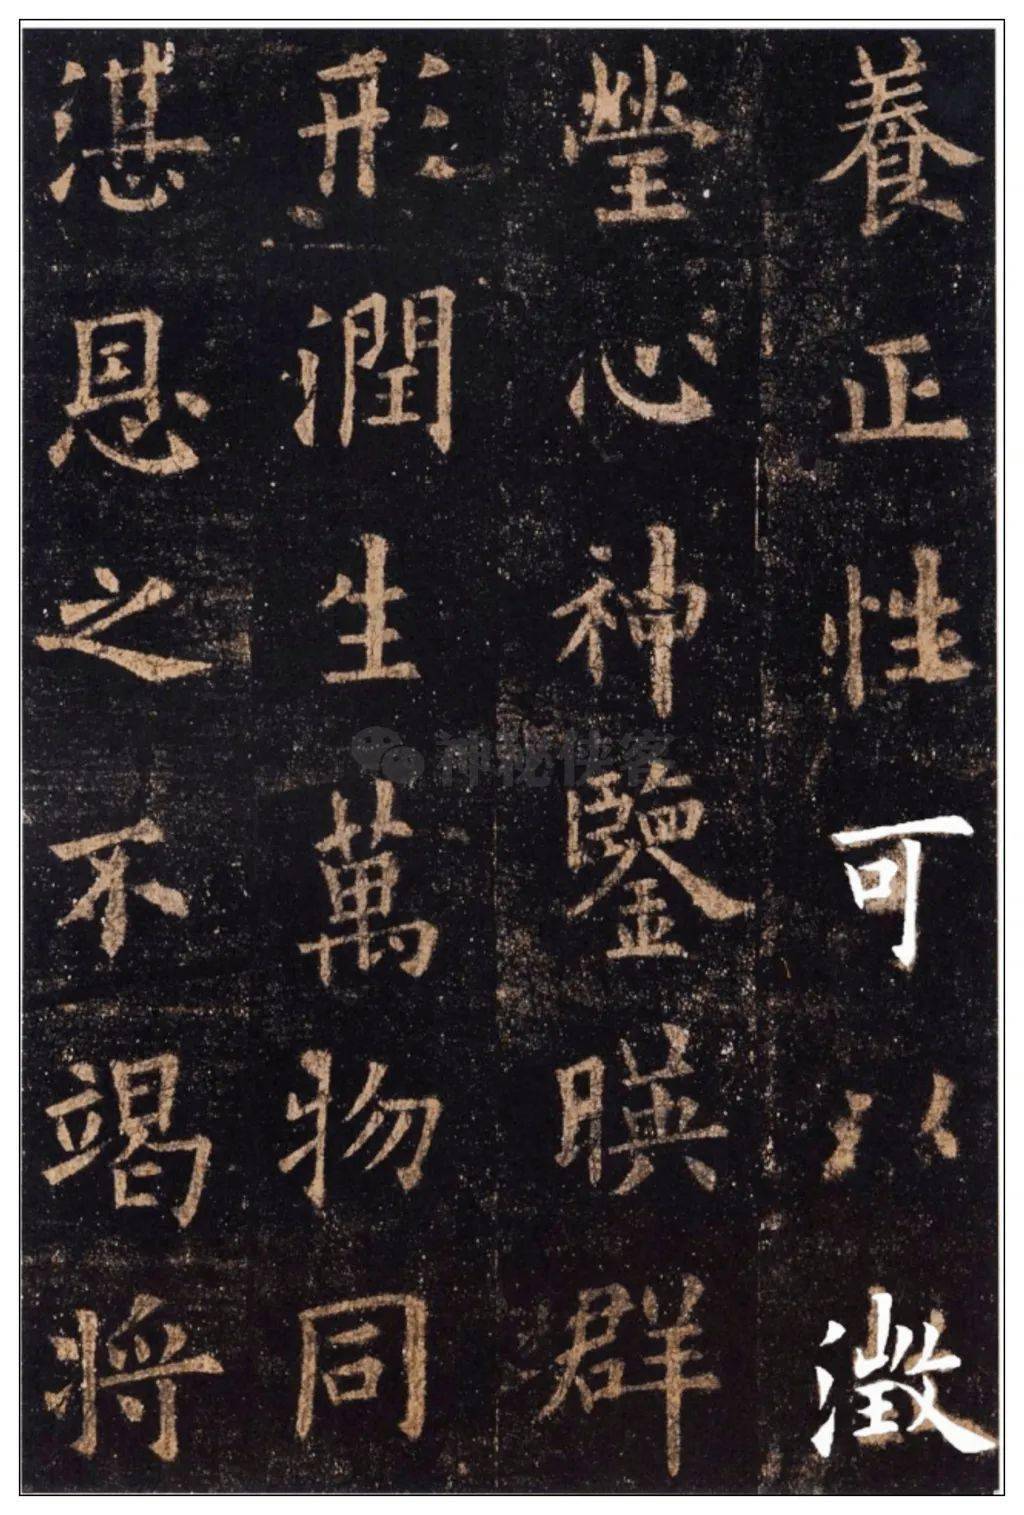 養正性可以澂
瑩心神鑒暎群
形潤生萬物同
湛恩之不竭将
神秘侠客